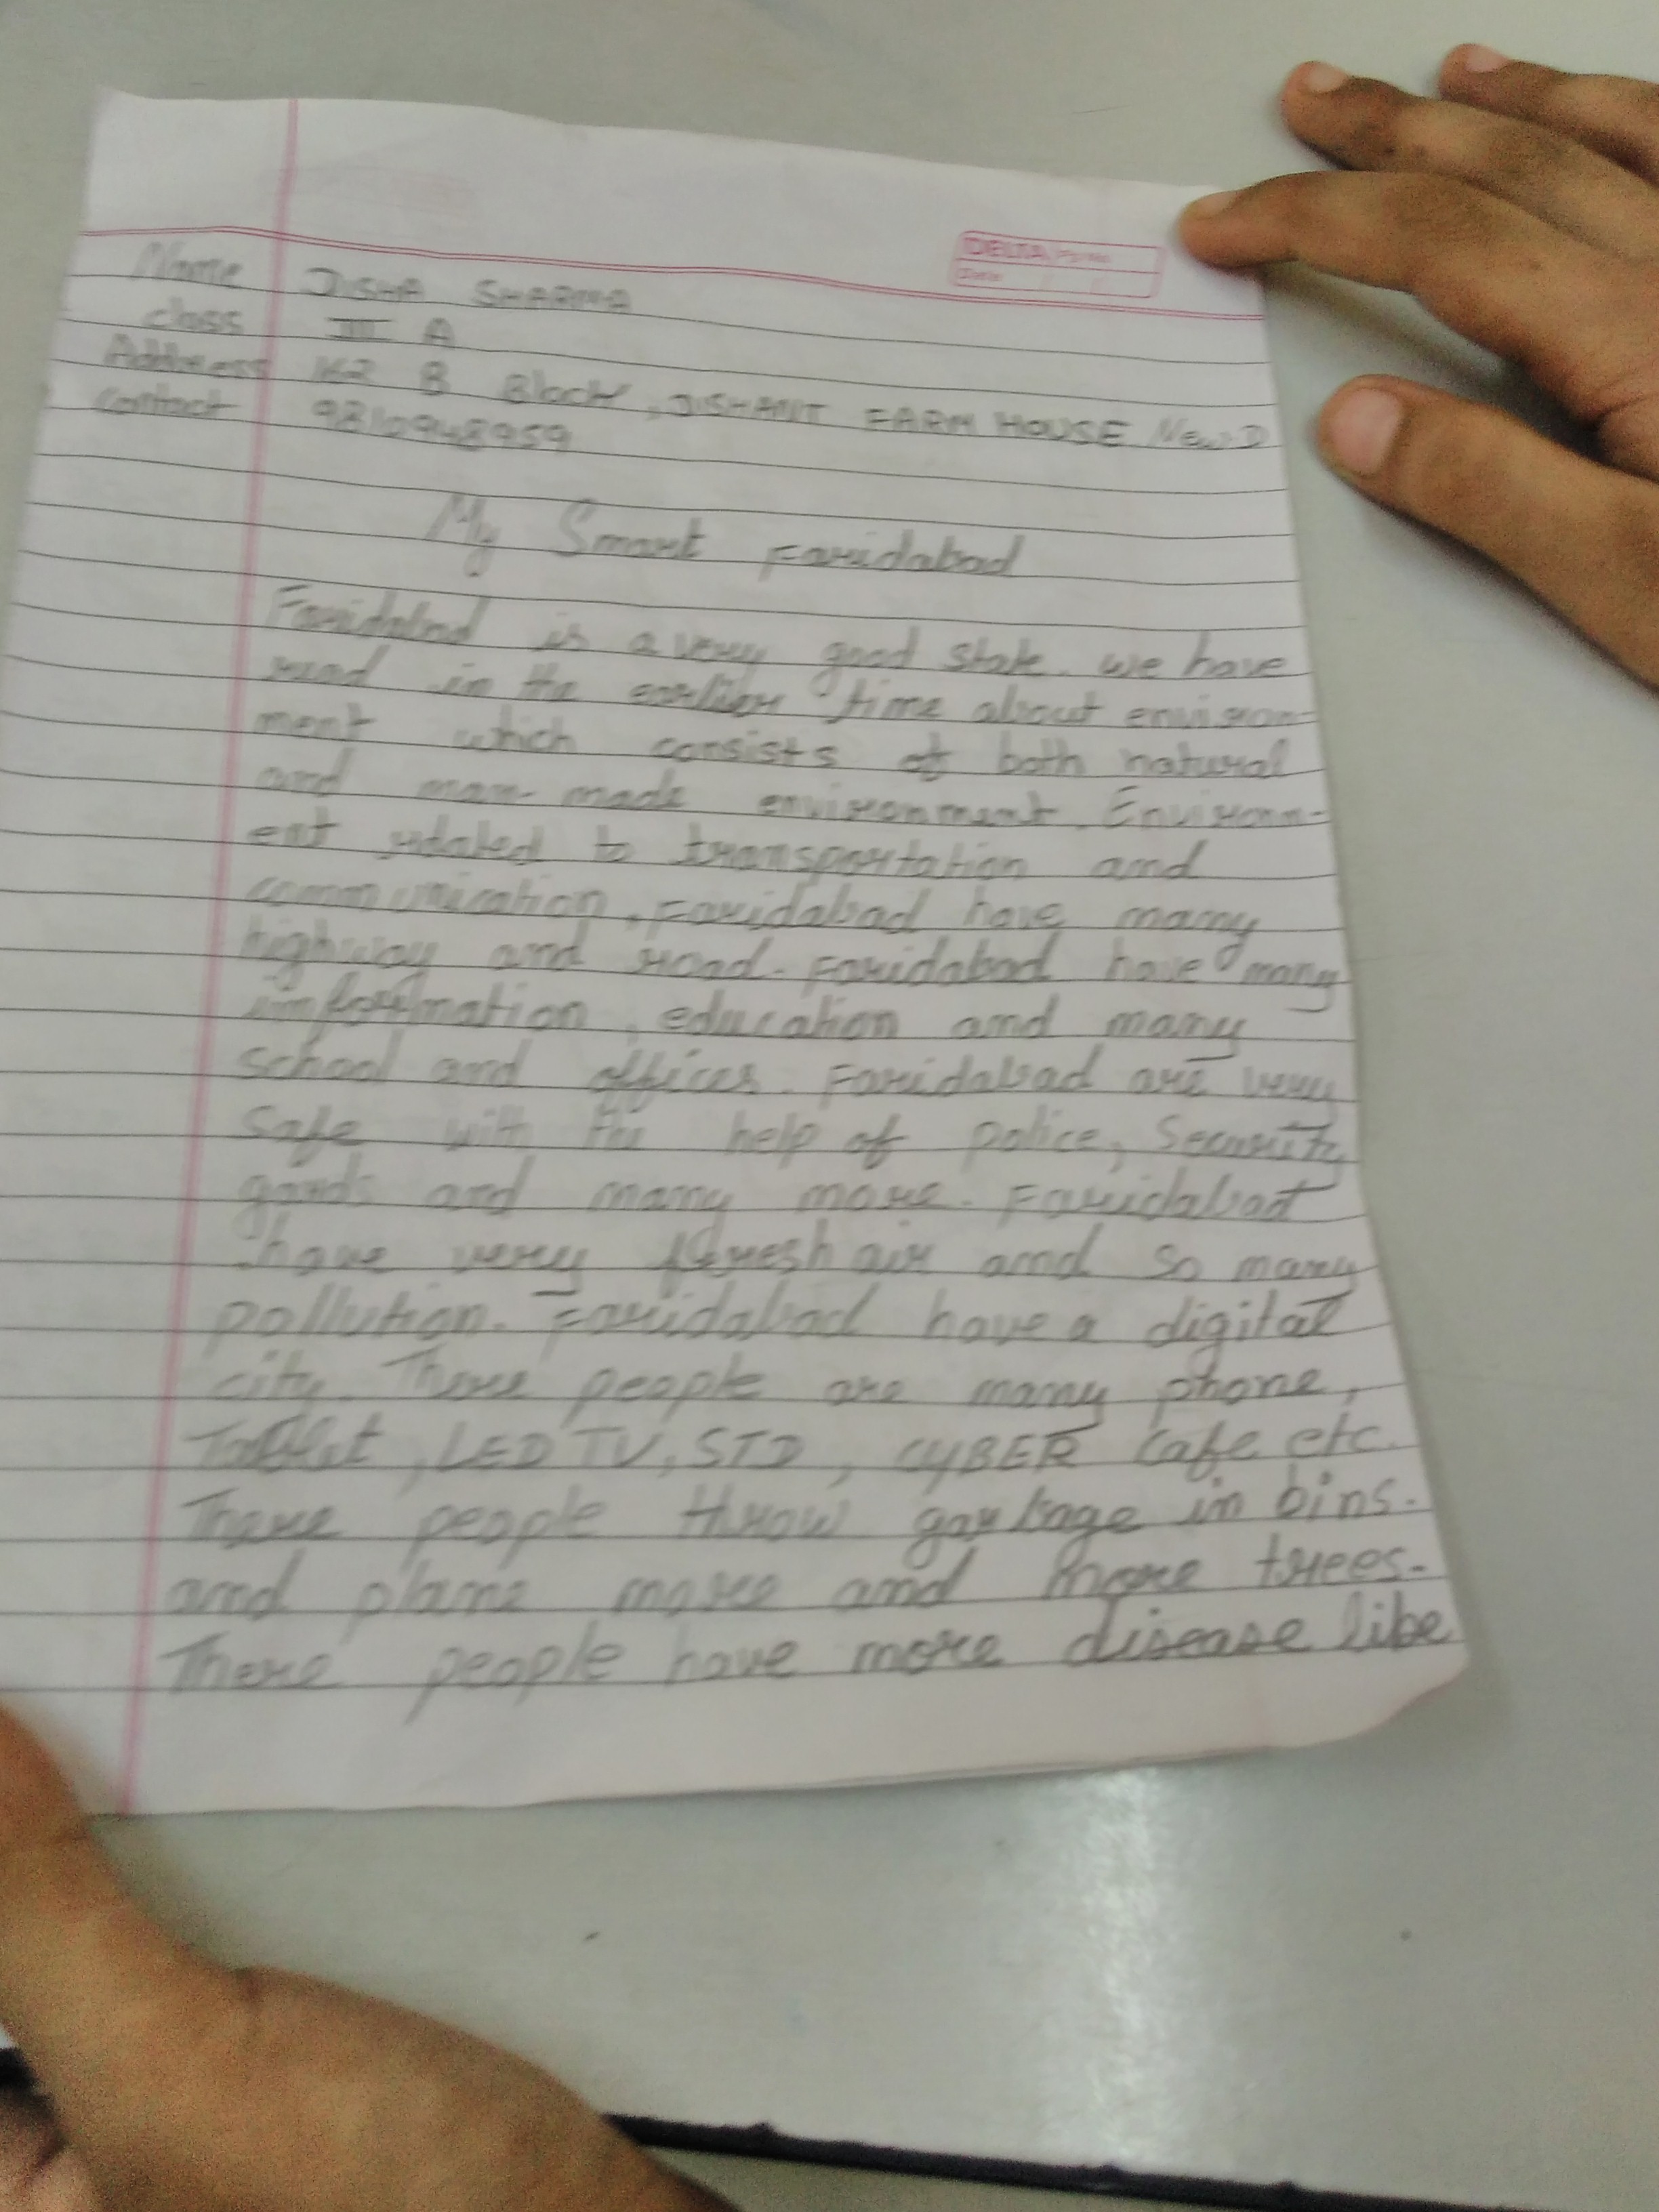 DELTA Pg No.
Date
Name DISHA SHARMA
class III A
Address 162 B Block, DISHANT FARM HOUSE New D
contact 9810948959
My Smart Faridabad
Faridabad is a very good state. we have
read in the earlier time about environ-
ment which consists of both natural
and man-made environment. Environm-
ent related to transportation and
communication, Faridabad have many
highway and road. Faridabad have many
information, education and many
school and offices. Faridabad are very
safe with the help of police, Security
gards and many more. Faridabad
have very fresh air and so many
pollution. Faridabad have a digital
city. There people are many phone,
Tablet, LED TV, STD, CYBER Cafe etc.
There people throw garbage in bins.
and plans more and more trees.
There people have more disease like